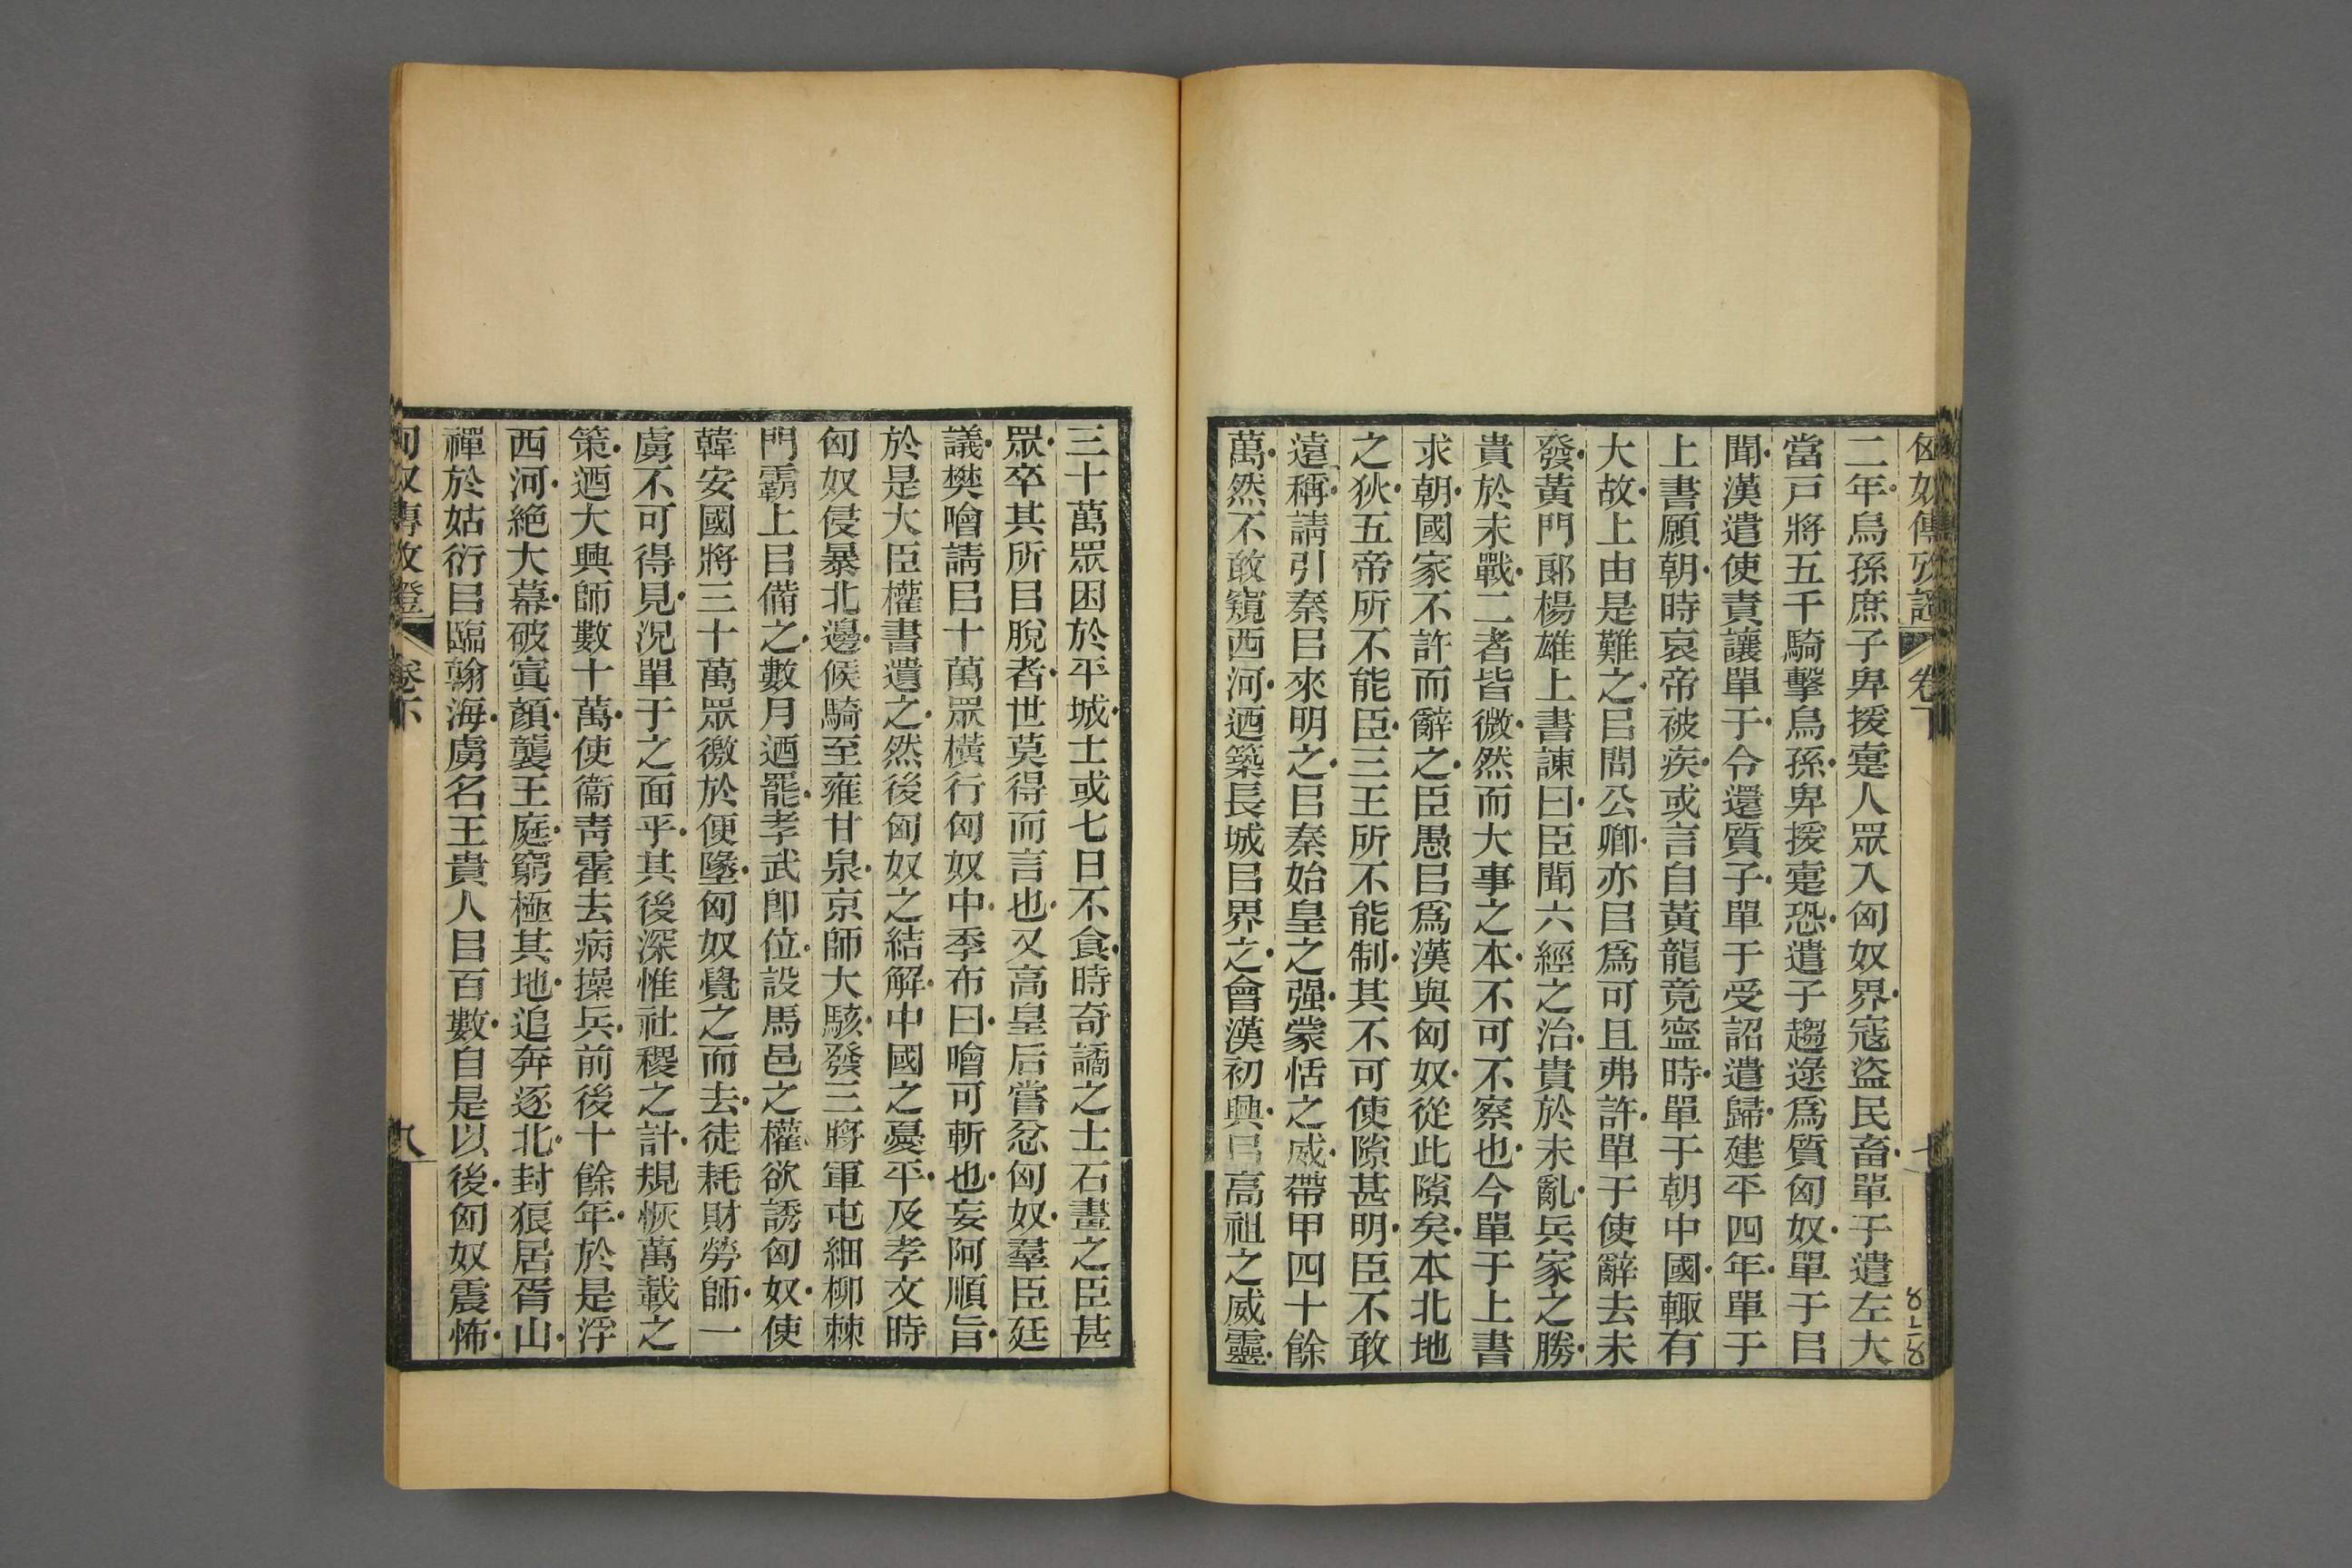 匈奴傳攷證 卷下
二年烏孫庶子卑援疐人眾入匈奴界寇盜民畜單于遣左大
當戸將五千騎擊烏孫卑援疐恐遣子趨逯爲質匈奴單于㠯
聞漢遣使責讓單于令還質子單于受詔遣歸建平四年單于
上書願朝時哀帝被疾或言自黃龍竟寍時單于朝中國輙有
大故上由是難之㠯問公卿亦㠯爲可且弗許單于使辭去未
發黃門郎楊雄上書諫曰臣聞六經之治貴於未亂兵家之勝
貴於未戰二者皆微然而大事之本不可不察也今單于上書
求朝國家不許而辭之臣愚㠯爲漢與匈奴從此隙矣本北地
之狄五帝所不能臣三王所不能制其不可使隙甚明臣不敢
遠稱請引秦㠯來明之㠯秦始皇之强蒙恬之威帶甲四十餘
萬然不敢窺西河迺築長城㠯界之會漢初興㠯高祖之威靈
8-8
三十萬眾困於平城士或七日不食時奇譎之士石畫之臣甚
眾卒其所㠯脫者世莫得而言也又高皇后嘗忿匈奴羣臣廷
議樊噲請㠯十萬眾橫行匈奴中季布曰噲可斬也妄阿順旨
於是大臣權書遺之然後匈奴之結解中國之憂平及孝文時
匈奴侵暴北邊候騎至雍甘泉京師大駭發三將軍屯細柳棘
門霸上㠯備之數月迺罷孝武卽位設馬邑之權欲誘匈奴使
韓安國將三十萬眾徼於便墬匈奴覺之而去徒耗財勞師一
虜不可得見況單于之面乎其後深惟社稷之計規恢萬載之
策迺大興師數十萬使衞靑霍去病操兵前後十餘年於是浮
西河絕大幕破寘顏襲王庭窮極其地追奔逐北封狼居胥山
禪於姑衍㠯臨翰海虜名王貴人㠯百數自是以後匈奴震怖
匈奴傳攷證 卷下 八